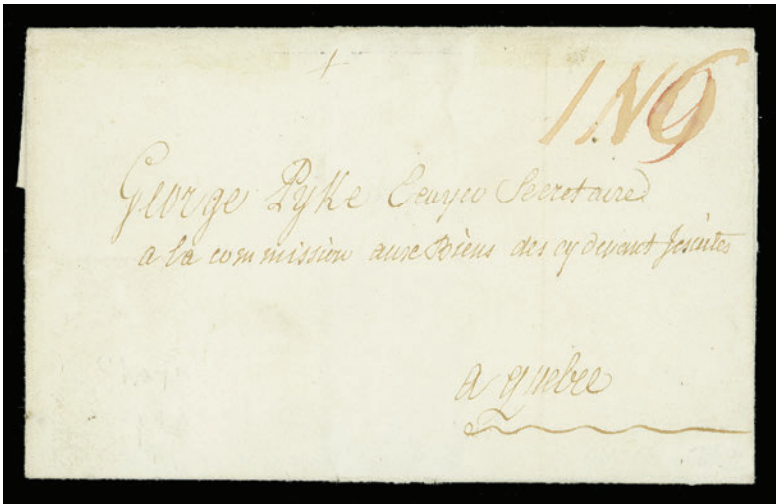 1 N 9
George Pyke Ecuyer Secretaire
a la commission aux Biens des cy devant Jesuites
a quebec